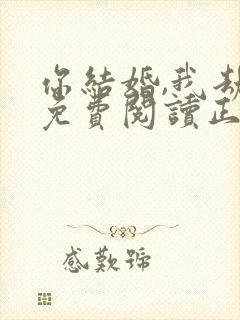 你結婚,我劫
免費閱讀正
感歎號